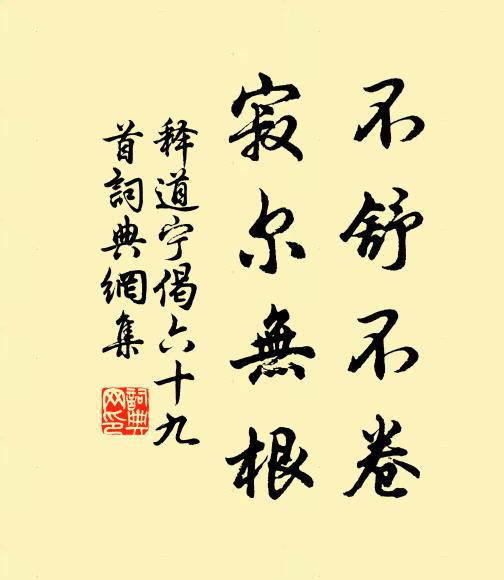 不舒不卷
寂尔無根
释道宁偈六十九
首詞典網集
詞典网印